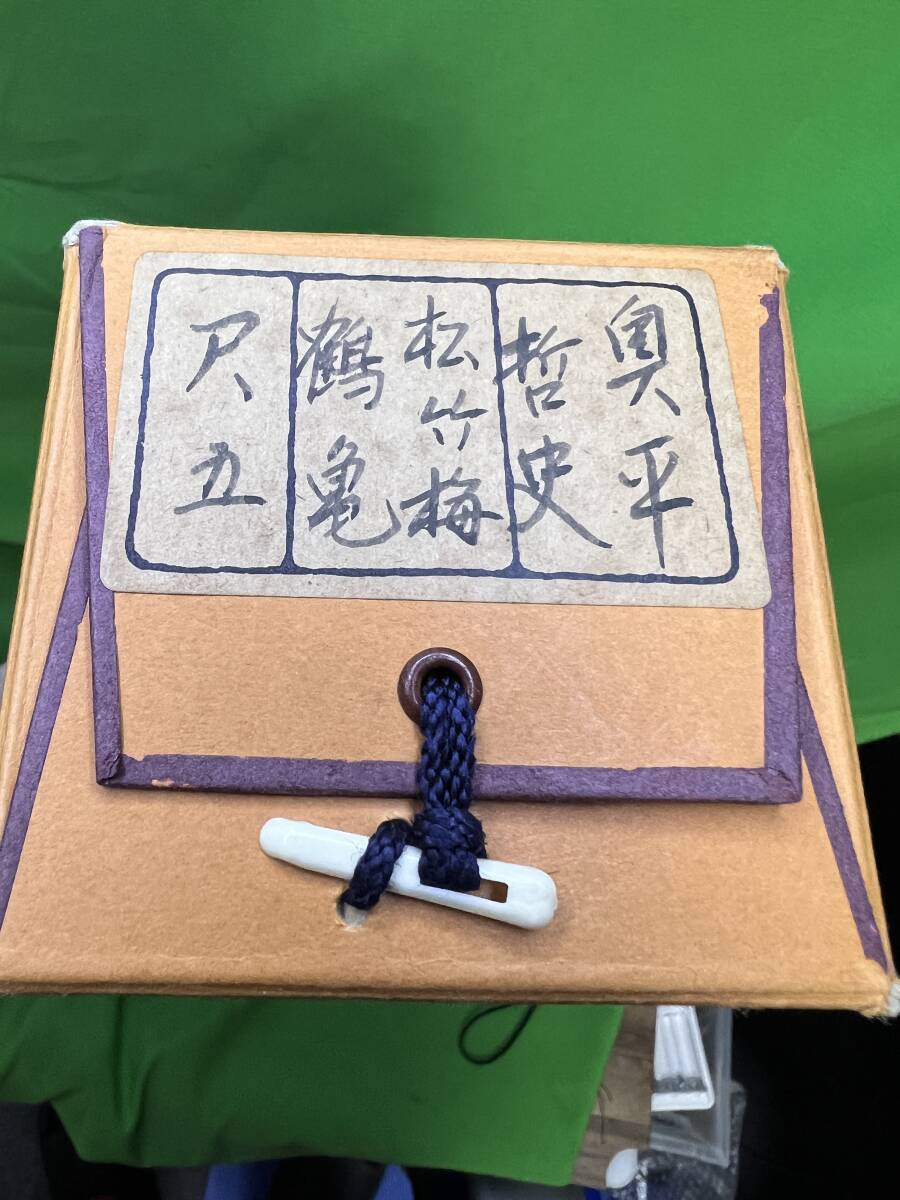 奥平
哲史
松竹梅
鶴亀
尺五